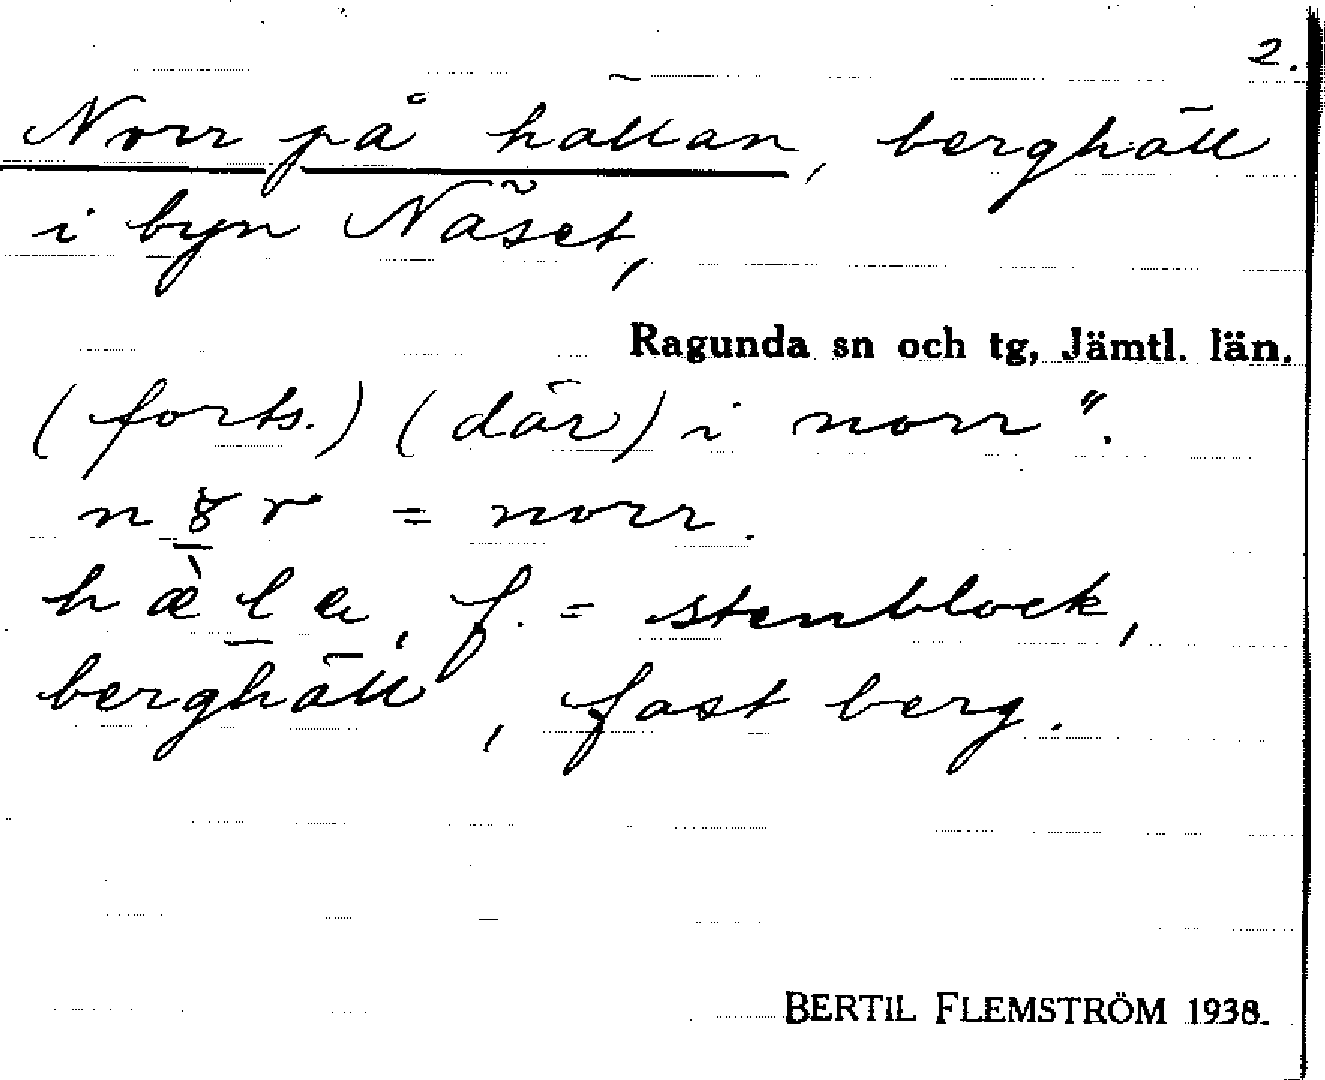 2.
Norr på hällan, berghäll
i byn Näset,
Ragunda sn och tg, Jämtl. län.
(forts.) (där) i norr".
= norr.
f. = stenblock,
berghäll, fast berg.
BERTIL FLEMSTRÖM 1938.